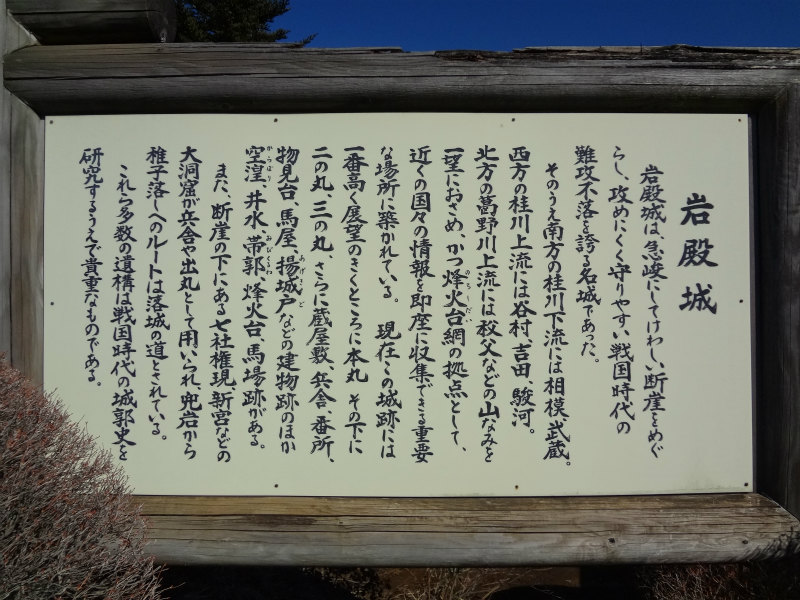 岩殿城
岩殿城は、急峻にしてけわしい断崖をめぐ
らし、攻めにくく守りやすい戦国時代の
難攻不落を誇る名城であった。
そのうえ南方の桂川下流には相模、武蔵。
西方の桂川上流には谷村、吉田、駿河。
北方の葛野川上流には秩父などの山なみを
一望におさめ、かつ烽火台網の拠点として、
のろしだい
近くの国々の情報を即座に収集できる重要
な場所に築かれている。 現在この城跡には
一番高く展望のきくところに本丸 その下に
二の丸、三の丸、さらに蔵屋敷、兵舎、番所、
物見台、馬屋、揚城戸などの建物跡のほか
あげきど
空湟、井水、帯郭、烽火台、馬場跡がある。
からほり おびくるわ
また、断崖の下にある七社権現、新宮などの
大洞窟が兵舎や出丸として用いられ、兜岩から
稚子落しへのルートは落城の道とされている。
これら多数の遺構は戦国時代の城郭史を
研究するうえで貴重なものである。